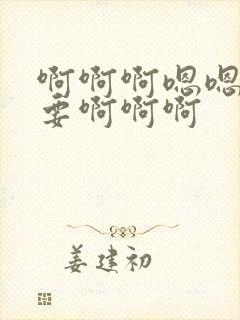 啊啊啊嗯嗯
要啊啊啊
姜建初